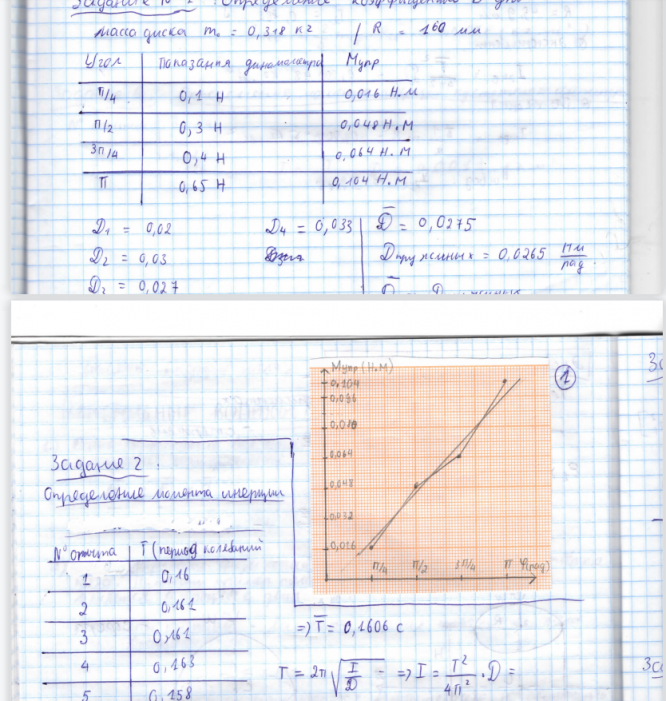 Задание № : Определение коэффициента D
масса диска m₀ = 0,318 кг / R = 160 мм
Угол показания динамометра Mупр
π/4 0,1 Н 0,016 Н.м
π/2 0,3 Н 0,048 Н.м
3π/4 0,4 Н 0,064 Н.м
π 0,65 Н 0,104 Н.м
D₁ = 0,02 D₄ = 0,033 D̅ = 0,0275
D₂ = 0,03 Dпружинных = 0,0265 Нм/рад.
D₃ = 0,027
Mупр (Н.м)
1
0,104
0,096
0,080
0,064
0,048
0,032
0,016
π/4 π/2 3π/4 π φ(рад)
Задание 2.
Определение момента инерции
№ опыта T (период колебаний
1 0,16
2 0,161
3 0,161
4 0,163
5 0,158
=> T̅ = 0,1606 с
T = 2π√(I/D) => I = T²/4π² · D =